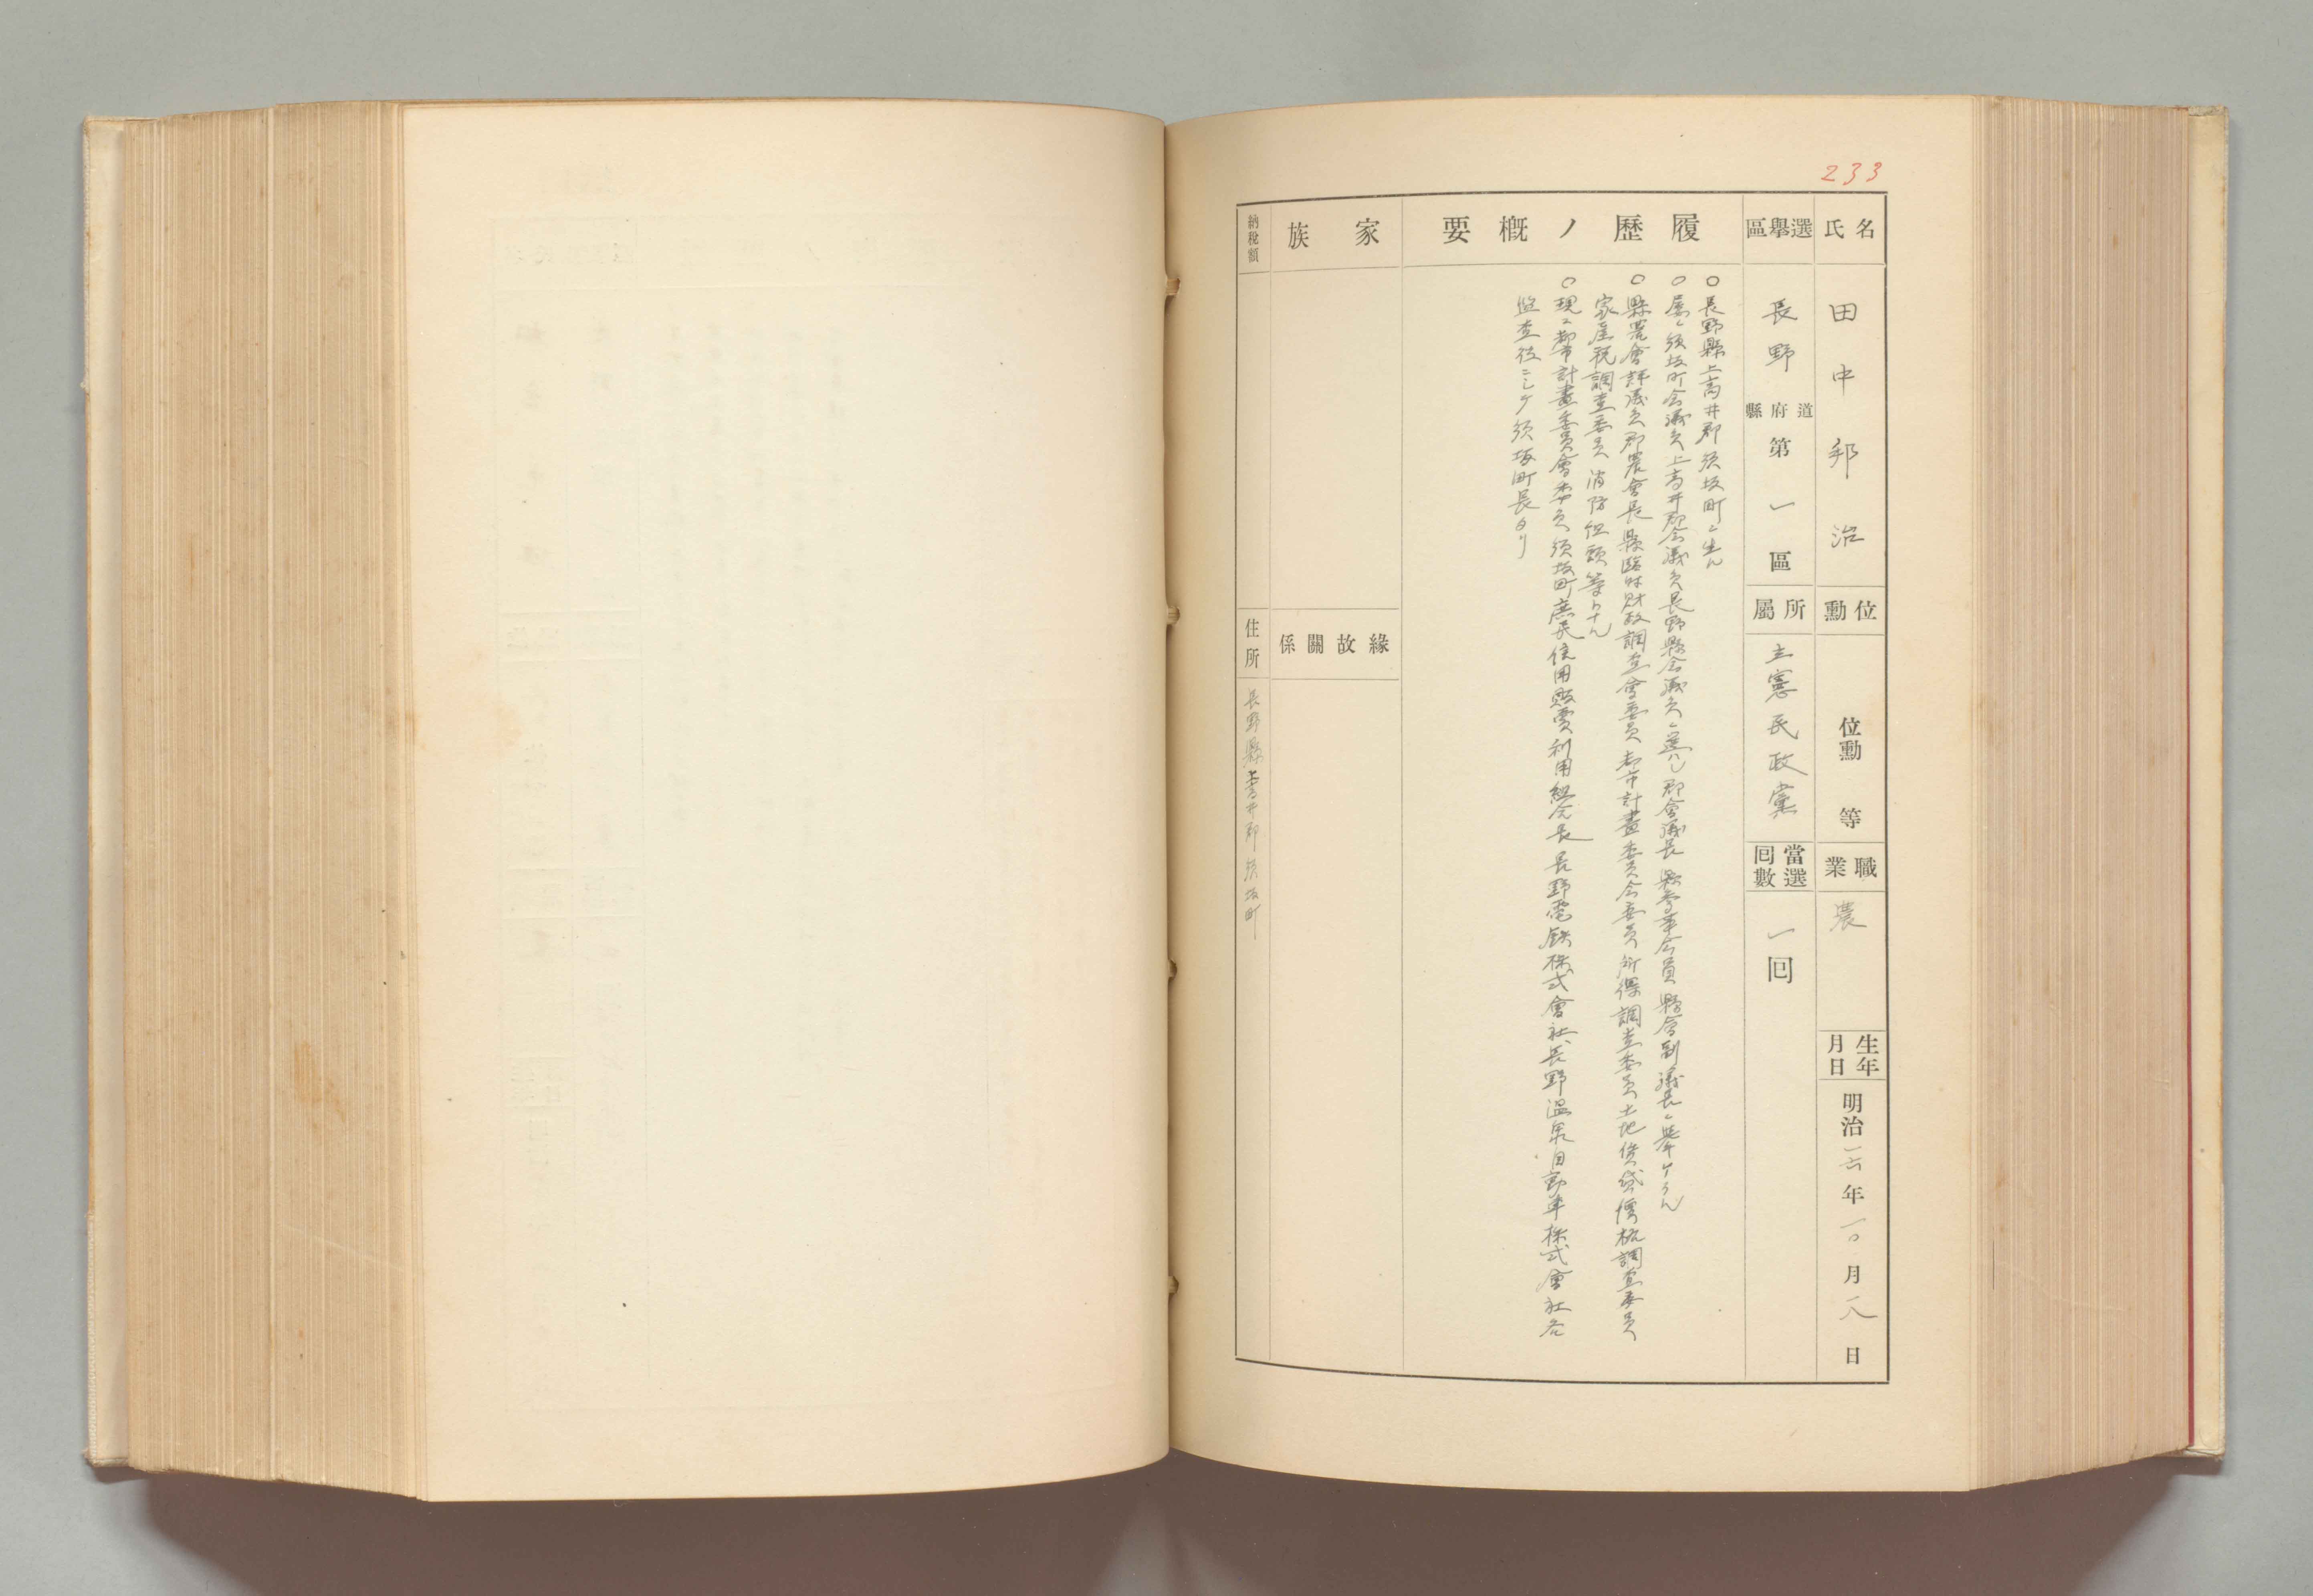 233
氏名
田中邦治
位勳
位勳 等
職業
農
生年月日
明治一六年一〇月一八日
選擧區
長野 道府縣 第一區
所屬
立憲民政黨
當選回數
一回
履歷ノ概要
○長野縣上高井郡須坂町ニ生ル
○屡々須坂町会議員上高井郡会議員長野縣会議員ニ選ハレ郡會議長縣參事会員縣會副議長ニ擧ケラル
○縣農會評議員郡農會長縣臨時財政調査會委員都市計畫委員会委員所得調査委員土地賃貸價格調査委員
家屋税調査委員消防組頭等トナル
○現ニ都市計畫委員會委員須坂町庶民信用販賣利用組合長長野電鉄株式會社、長野温泉自動車株式會社各
監査役ニシテ須坂町長タリ
家族
緣故關係
納稅額
住所
長野縣上高井郡須坂町